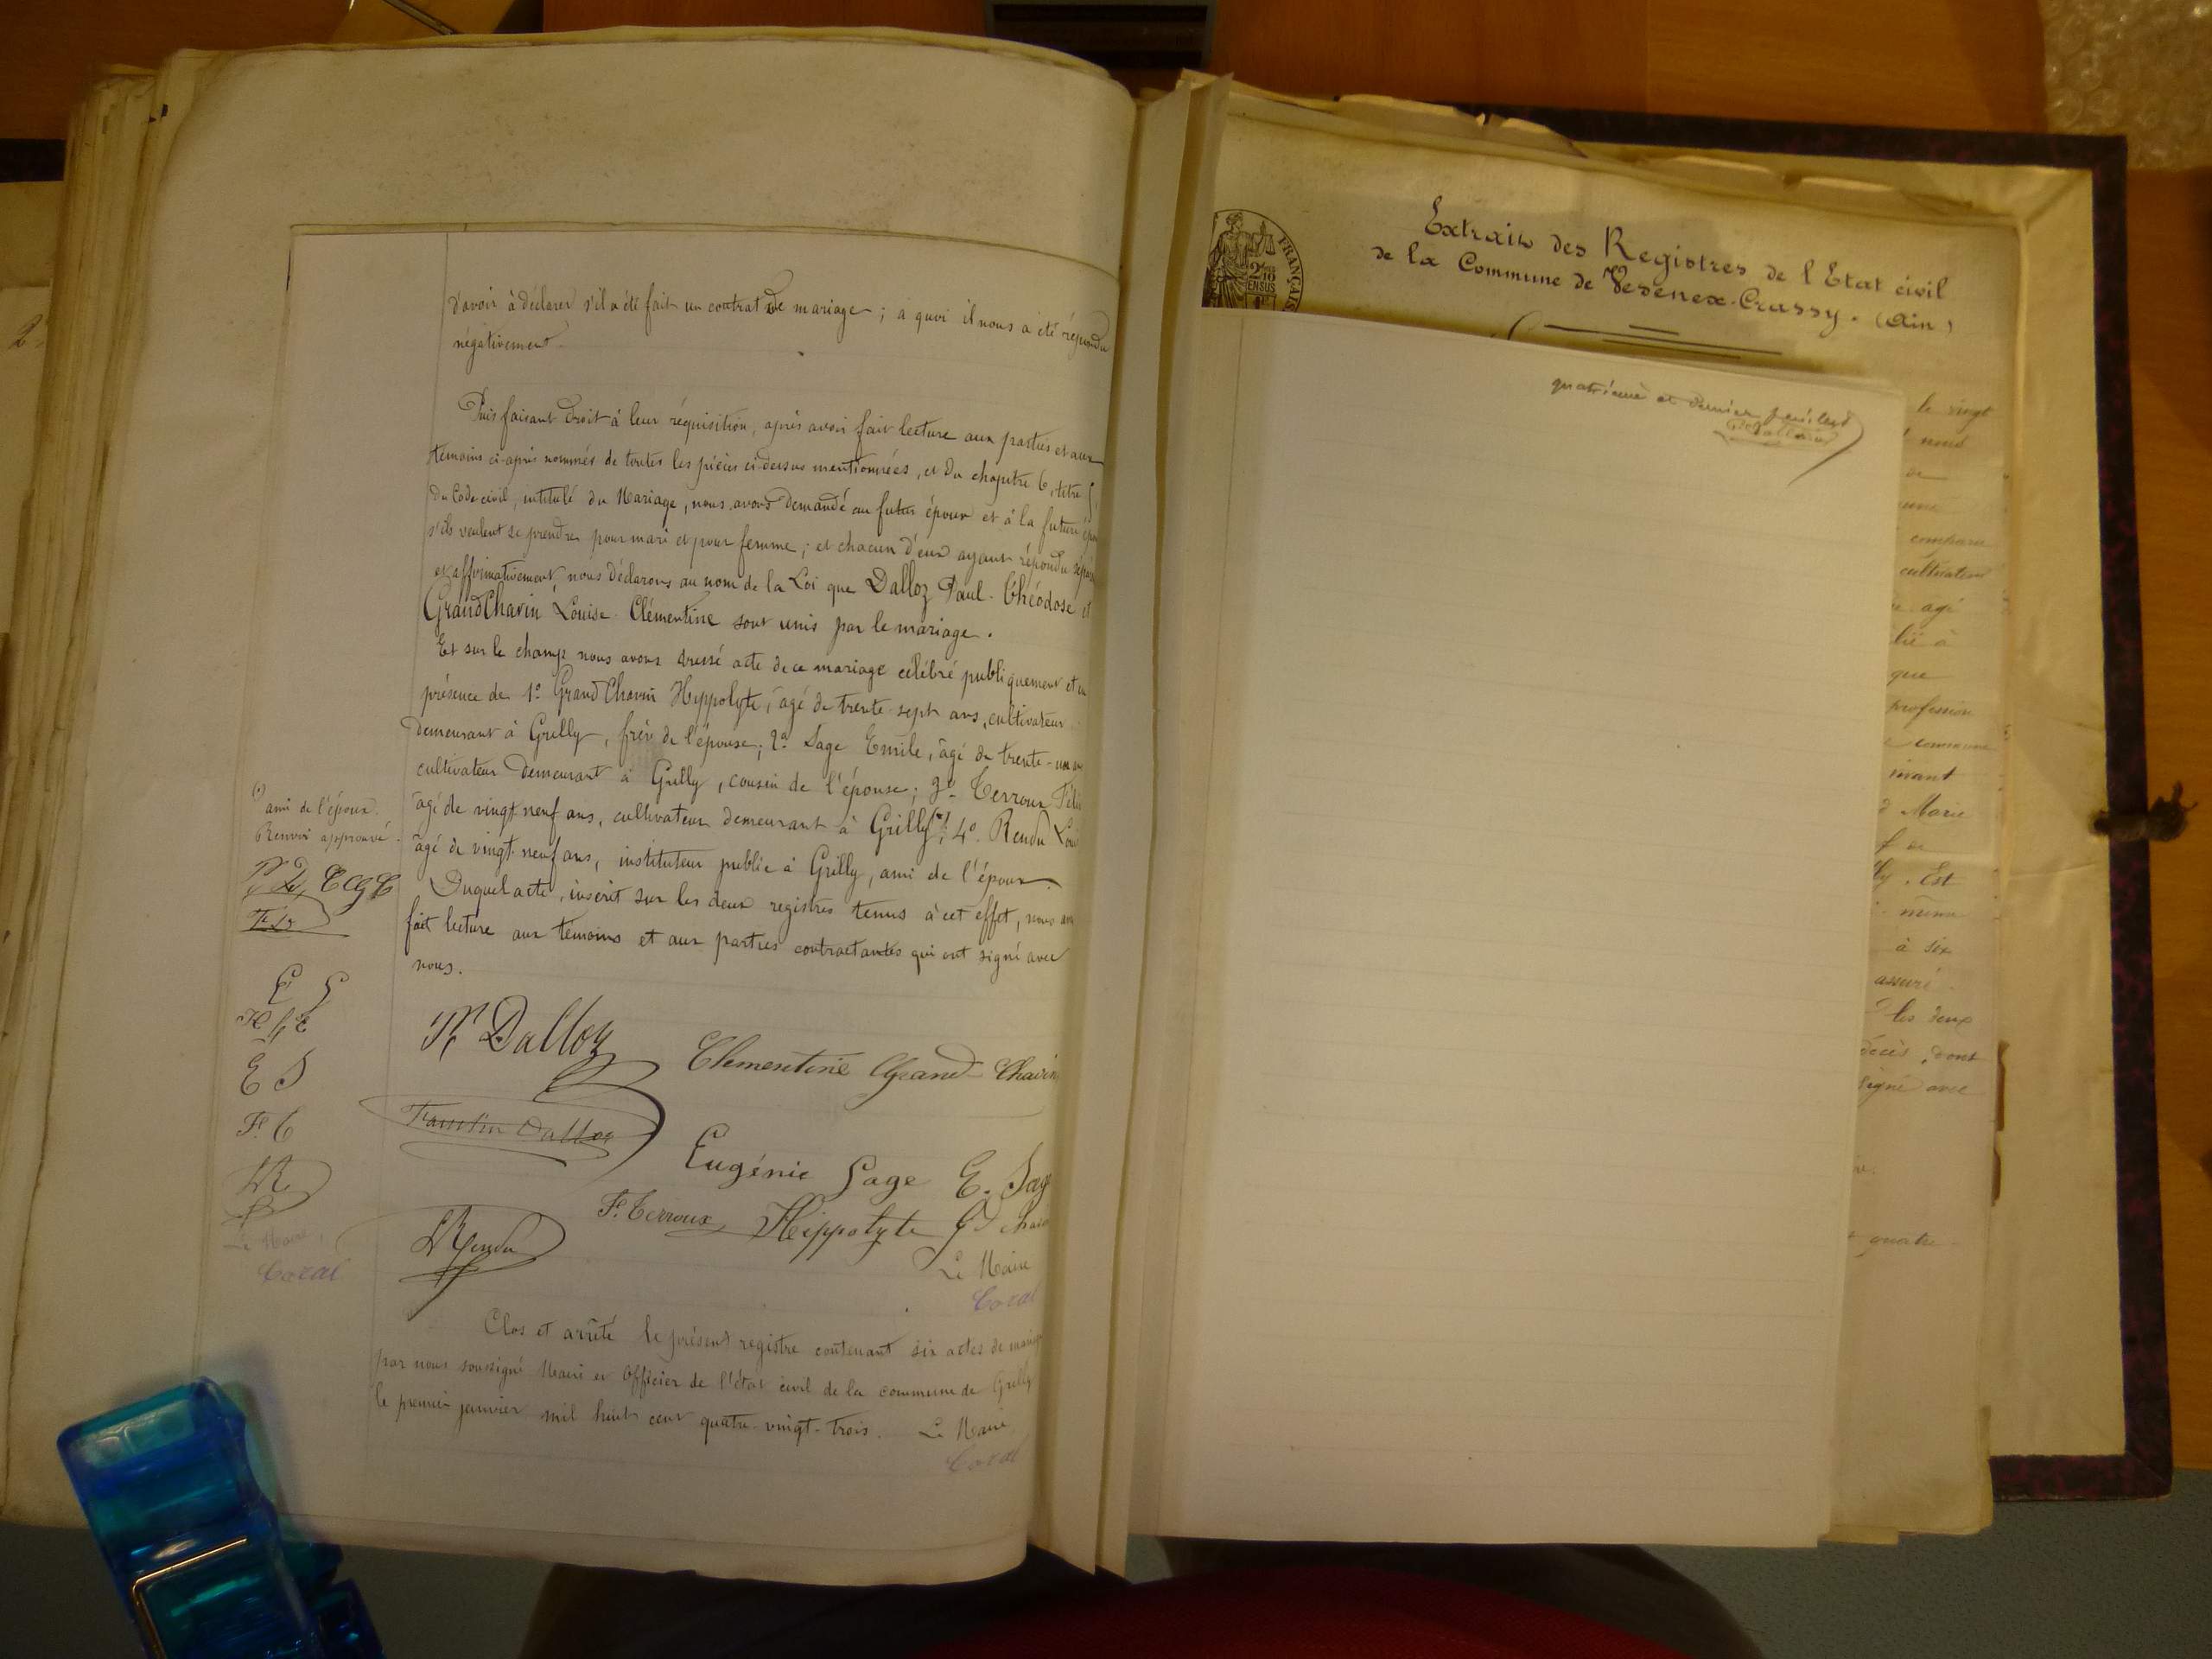 d'avoir à déclarer s'il a été fait un contrat de mariage ; a quoi il nous a été répondu
négativement.
Puis faisant droit à leur réquisition, après avoir fait lecture aux parties et aux
témoins ci-après nommés de toutes les pièces ci-dessus mentionnées, et du chapitre 6, titre 5,
du Code civil, intitulé du Mariage, nous avons demandé au futur époux et à la future
s'ils veulent se prendre pour mari et pour femme ; et chacun d'eux ayant répondu
et affirmativement, nous déclarons au nom de la Loi que Dalloz Paul-Théodose et
GrandChavin Louise-Clémentine sont unis par le mariage.
Et sur le champ nous avons dressé acte de ce mariage célébré publiquement et en
présence de 1° GrandChavin Hyppolyte, âgé de trente-sept ans, cultivateur
demeurant à Grilly, frère de l'épouse ; 2° Sage Emile, âgé de trente-un
cultivateur demeurant à Grilly, cousin de l'épouse ; 3° Terroux
âgé de vingt-neuf ans, cultivateur demeurant à Grilly (*) ; 4° Rendu
âgé de vingt-neuf ans, instituteur public à Grilly, ami de l'époux.
Duquel acte, inscrit sur les deux registres tenus à cet effet, nous
fait lecture aux témoins et aux parties contractantes qui ont signé avec
nous.
(*) ami de l'époux.
Renvoi approuvé.
E S
E S
F. T
Le Maire,
P. Dalloz
Clementine Grand-Chavin
Faustin Dalloz
Eugénie Sage E. Sage
F. Terroux Hippolyte Gd
LRendu
Le Maire
Clos et arrêté le présent registre contenant six actes de
par nous soussigné Maire et Officier de l'état civil de la commune de Grilly
le premier janvier mil huit cent quatre-vingt-trois. Le Maire
Extraits des Registres de l'Etat civil
de la Commune de Vesenex-Crassy. (Ain)
FRANÇAIS
quatrième et dernier feuillet
le vingt
nous
de
compara
cultivateur
âgé
à
que
profession
commune
Marie
de
Est
même
à six
assuré
les deux
décès, dont
signé avec
quatre